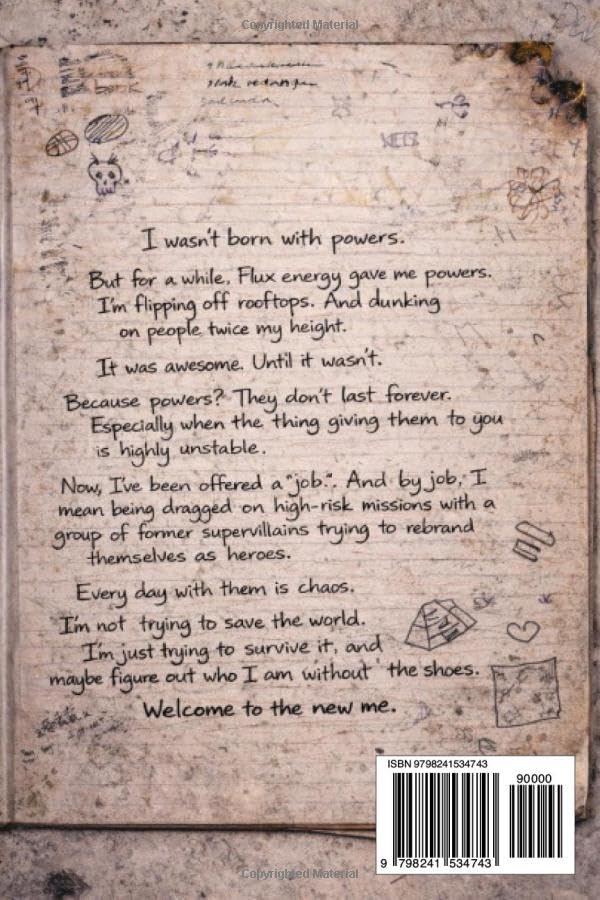 Copyrighted Material
I wasn't born with powers.
But for a while, Flux energy gave me powers.
I'm flipping off rooftops. And dunking
on people twice my height.
It was awesome. Until it wasn't.
Because powers? They don't last forever.
Especially when the thing giving them to you
is highly unstable.
Now, I've been offered a "job.". And by job, I
mean being dragged on high-risk missions with a
group of former supervillains trying to rebrand
themselves as heroes.
Every day with them is chaos.
I'm not trying to save the world.
I'm just trying to survive it, and
maybe figure out who I am without the shoes.
Welcome to the new me.
ISBN 9798241534743
90000
9 798241 534743
Copyrighted Material